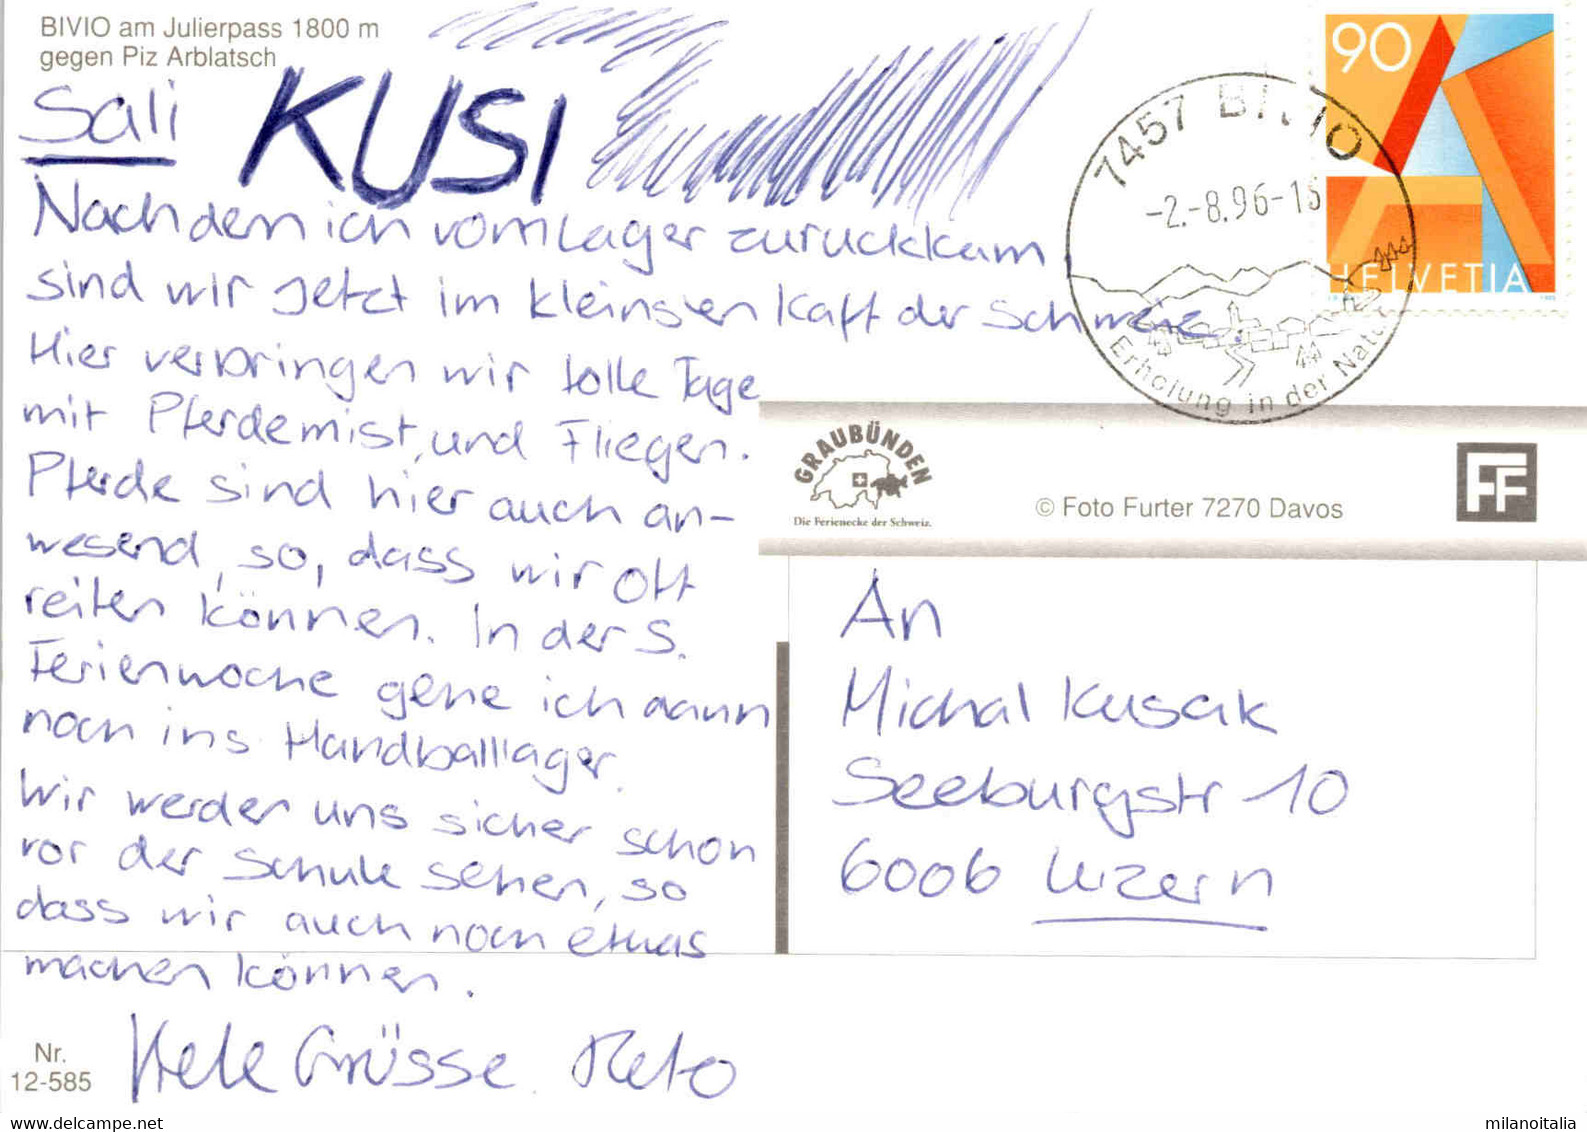 BIVIO am Julierpass 1800 m
gegen Piz Arblatsch
Sali KUSI
Nachdem ich vom Lager zurückkam
sind wir jetzt im kleinsten Kaff der Schweiz
Hier verbringen wir tolle Tage
mit Pferdemist, und Fliegen.
Pferde sind hier auch an-
wesend, so, dass wir oft
reiten können. In der 5.
Ferienwoche gehe ich dann
noch ins Handballlager.
Wir werden uns sicher schon
vor der Schule sehen, so
dass wir auch noch etwas
machen können.
Viele Grüsse Reto
Nr.
12-585
90
HELVETIA
7457 BIVIO
-2.-8.96-18
Erholung in der Natur
GRAUBÜNDEN
Die Ferienecke der Schweiz.
© Foto Furter 7270 Davos
FF
An
Michal Kusak
Seeburgstr 10
6006 Luzern
delcampe.net
milanoitalia